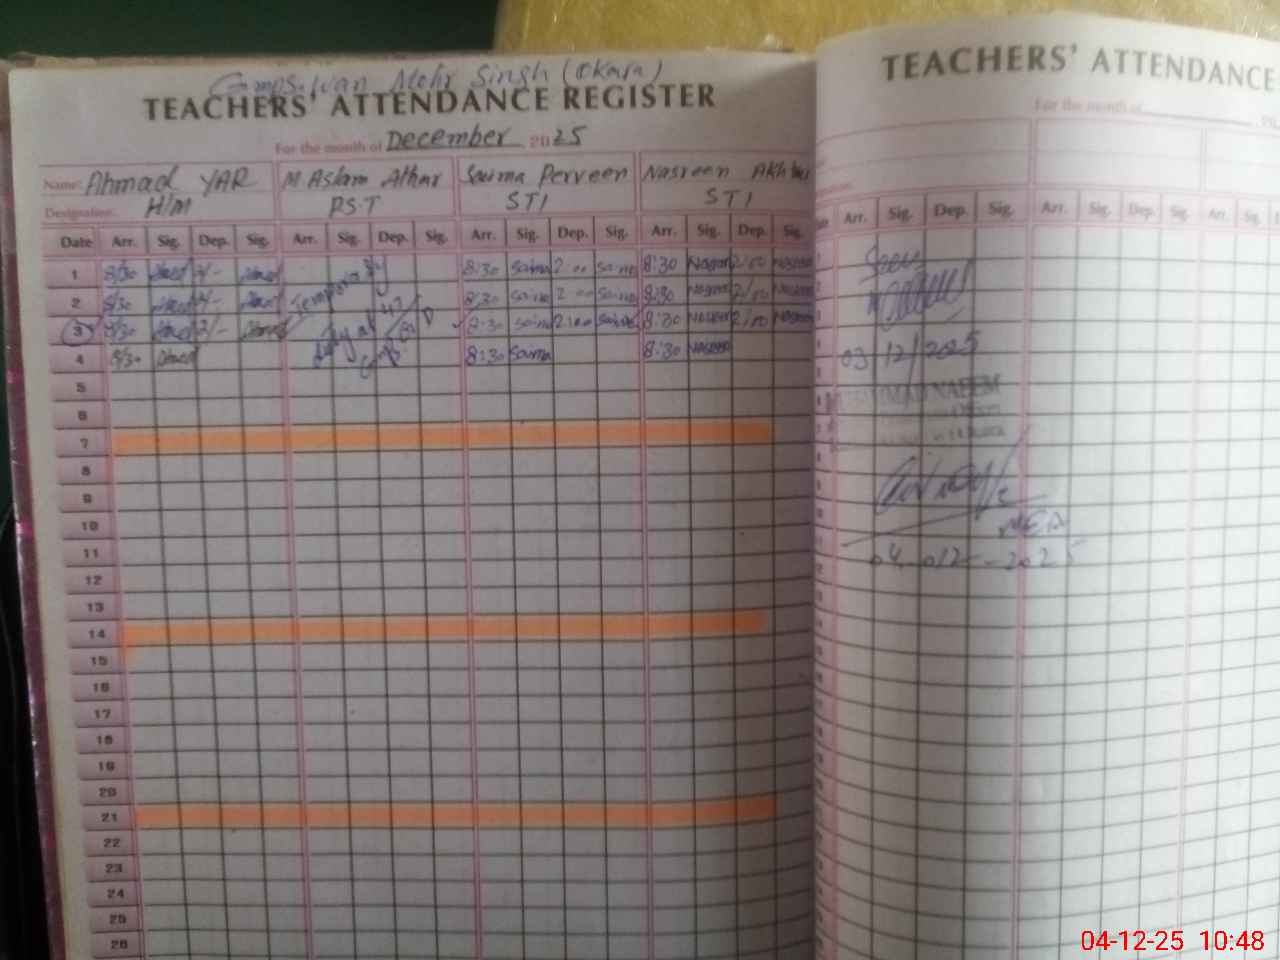 Gmps. Wan Mohr Singh (Okara)
TEACHERS' ATTENDANCE REGISTER
For the month of December 2025
Name: Ahmad YAR M Aslam Athar Saima Perveen Nasreen Akhtar
Designation: H/M P.S.T STI STI
Date Arr. Sig. Dep. Sig. Arr. Sig. Dep. Sig. Arr. Sig. Dep. Sig. Arr. Sig. Dep. Sig.
1 8/30 Ahmad 2/- Ahmad 8:30 Saima 2:00 Saima 8:30 Nasreen 2/00 Nasreen
2 8/30 Ahmad 2/- Ahmad Temporary 8:30 Saima 2:00 Saima 8:30 Nasreen 2/00 Nasreen
3 8/30 Ahmad 2/- Ahmad Duty at 8:30 Saima 2:00 Saima 8:30 Nasreen 2/00 Nasreen
4 8/30 Ahmad 8:30 Saima 8:30 Nasreen
5
6
7
8
9
10
11
12
13
14
15
16
17
18
19
20
21
22
23
24
25
26
TEACHERS' ATTENDANCE
For the month of
Arr. Sig. Dep. Sig. Arr. Sig. Dep. Sig. Arr. Sig.
Seen
03/12/2025
NAEEM
MEA
04-012-2025
04-12-25 10:48